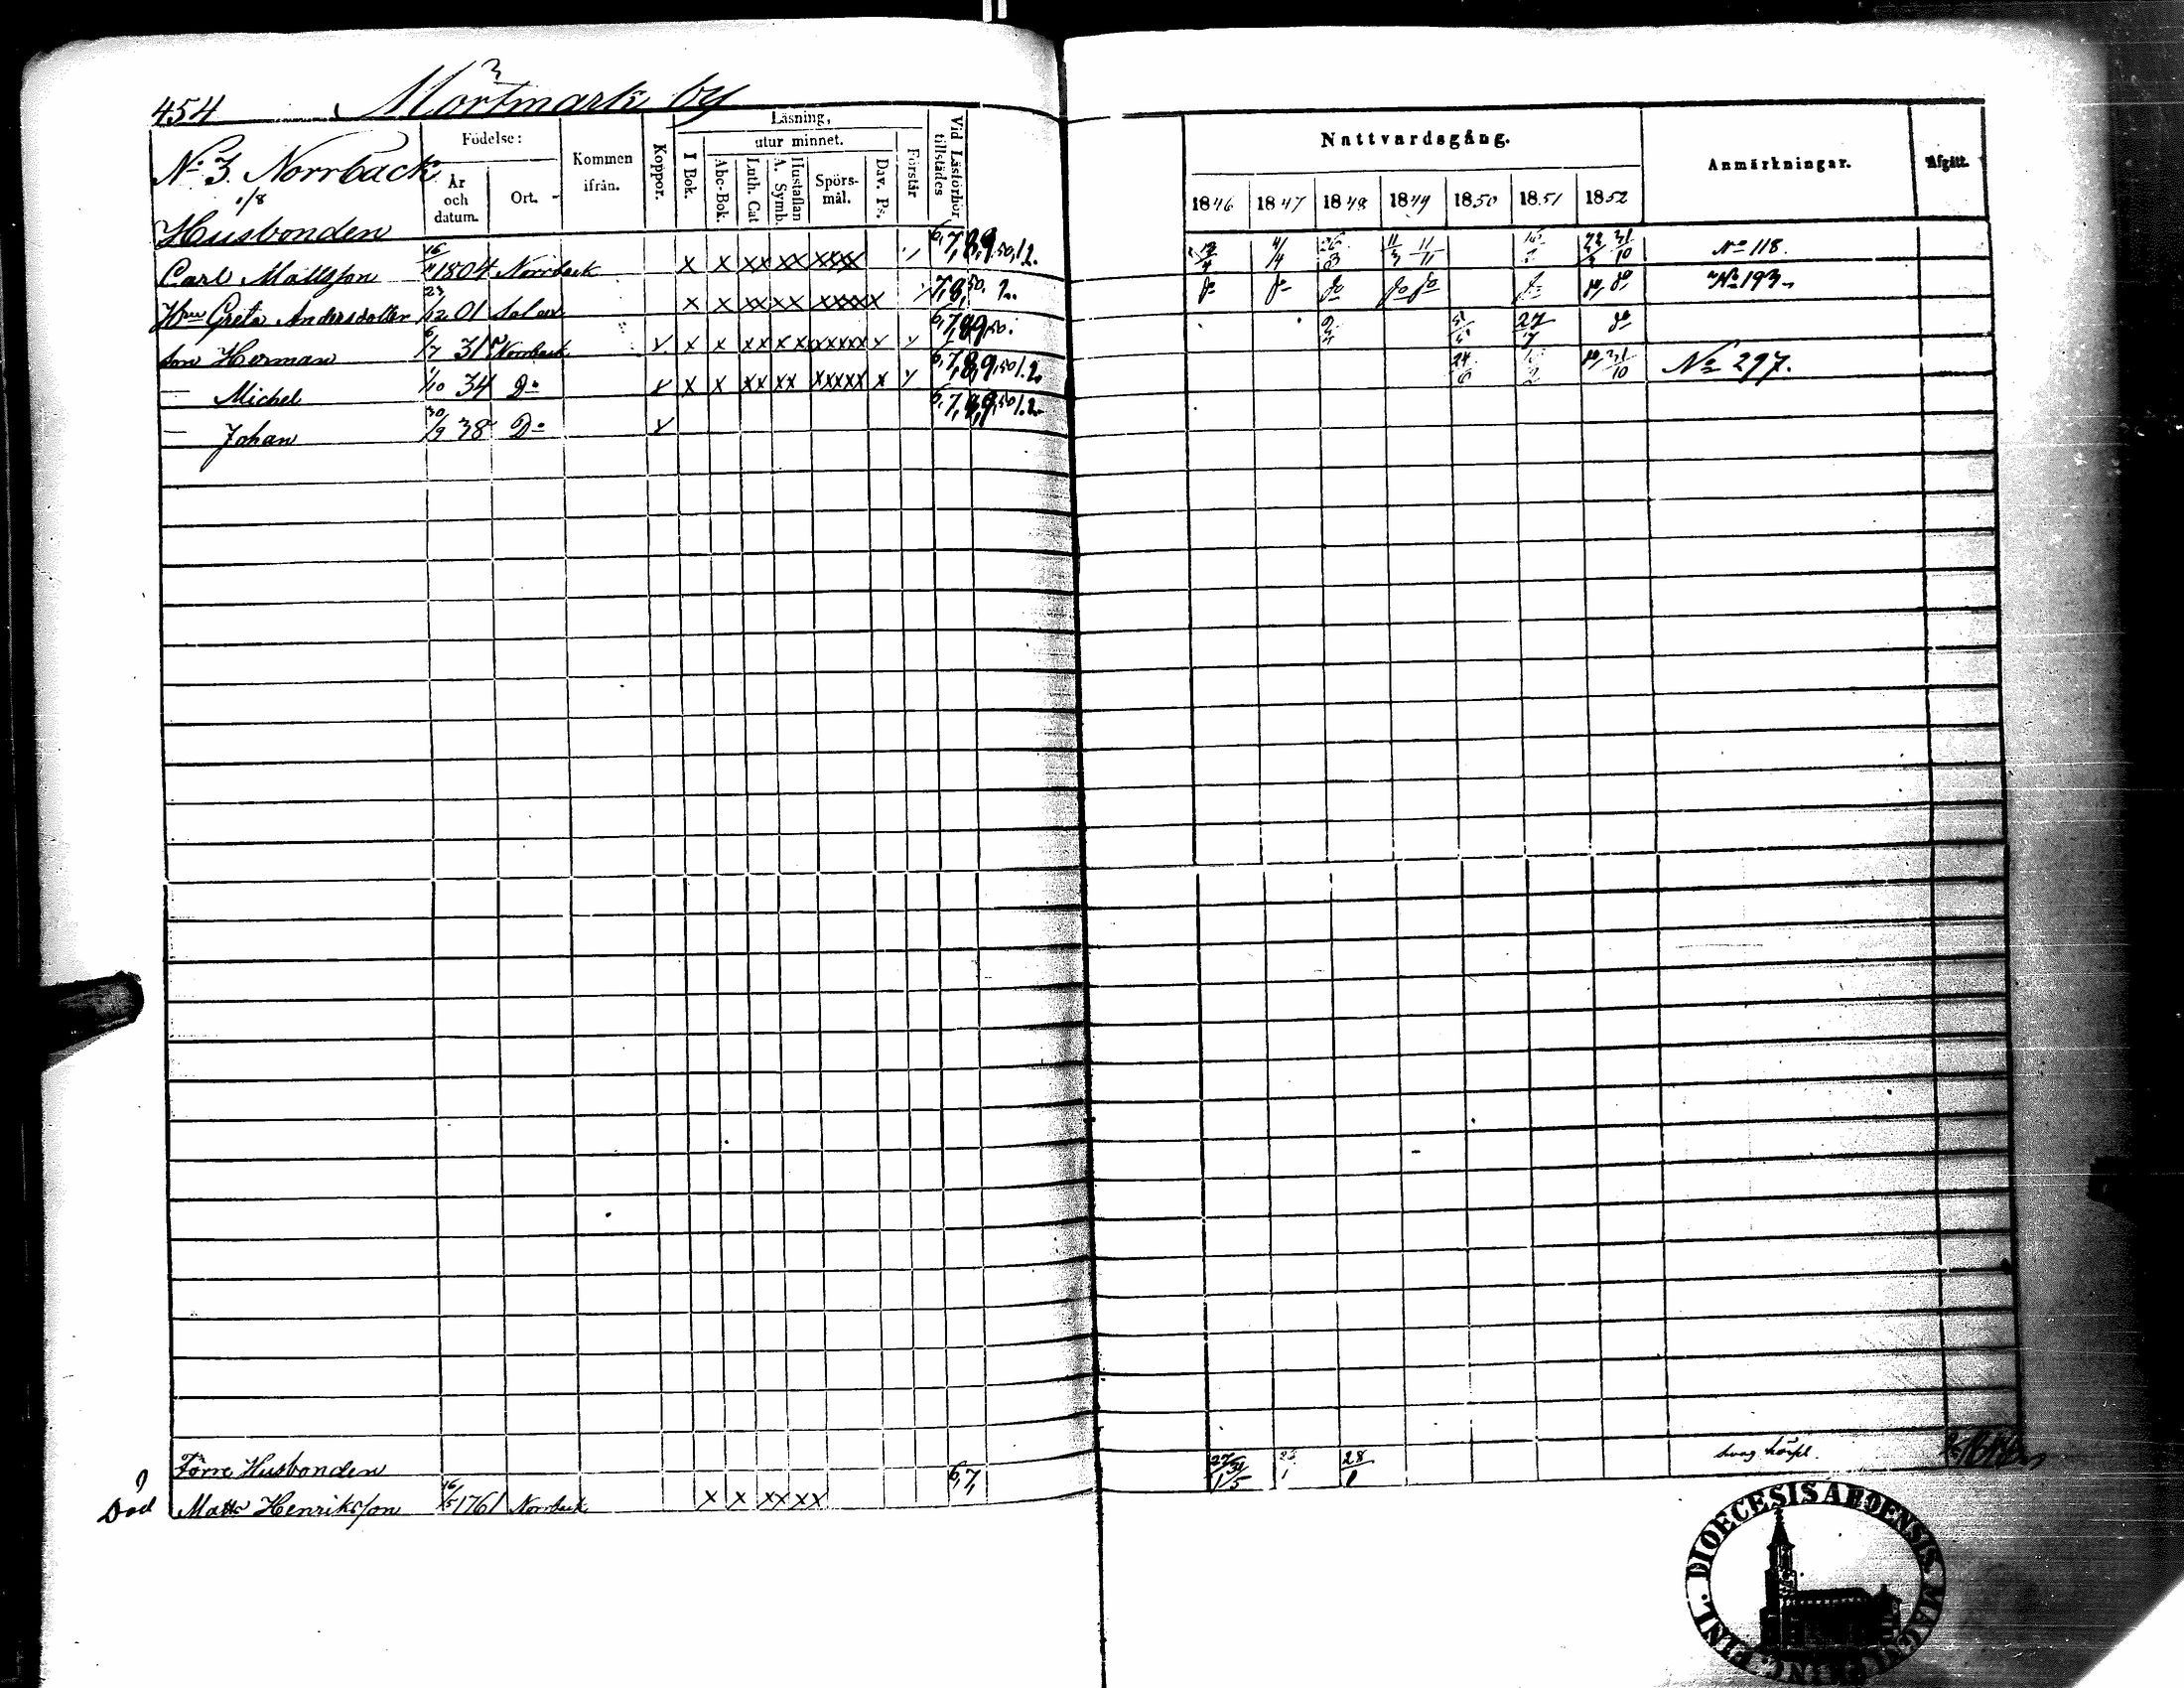 454 Mörtmark by
Nº 3. Norrback
Födelse: Kommen ifrån. Koppor. Läsning, Vid Läsförhör tillstädes
År och datum. Ort. I Bok. utur minnet. Förstår
Abc-Bok. Luth. Cat A. Symb. Hustaflan Spörs-mål. Dav. Ps.
Husbonden
Carl Mattsson 16/11 1804 Norrback x x xx xx xxxx 6,7,8,9,50,1.2.
Hru Greta Andersdotter 23/12 01 x x xx xx xxxxx 7,8,50. 2.
Son Herman 6/7 31 Norrback x x x xx xx xxxxx x x 6,7,8,9,50.
— Michel 1/10 34 Do x x x xx xx xxxxx x x 6,7,8,9,50.1.2.
— Johan 30/9 38 Do x 6,7,8,9,50.1.2.
Förre Husbonden
Död Matts Henriksson 16/5 1761 Norrback x x xx xx 6,7,
Nattvardsgång. Anmärkningar. Afgått.
1846 1847 1848 1849 1850 1851 1852
4/4 11/3 11/11 31/10 Nº 118.
do do do do do do do do Nº 193
27/7 do
24/6 do 31/10 Nº 297.
27/1 31/5 28/1 svag
FINL. DIOECESIS ABOENSIS MAGNI PRINC.